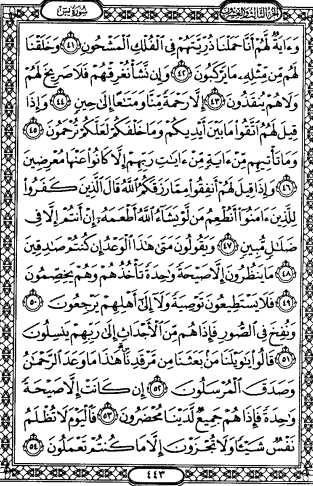 الجزء الثالث والعشرون
سورة يس
وَءَايَةٌ لَّهُمْ أَنَّا حَمَلْنَا ذُرِّيَّتَهُمْ فِي الْفُلْكِ الْمَشْحُونِ ٤١ وَخَلَقْنَا
لَهُم مِّن مِّثْلِهِ مَا يَرْكَبُونَ ٤٢ وَإِن نَّشَأْ نُغْرِقْهُمْ فَلَا صَرِيخَ لَهُمْ
وَلَا هُمْ يُنقَذُونَ ٤٣ إِلَّا رَحْمَةً مِّنَّا وَمَتَٰعًا إِلَىٰ حِينٍ ٤٤ وَإِذَا
قِيلَ لَهُمُ اتَّقُوا مَا بَيْنَ أَيْدِيكُمْ وَمَا خَلْفَكُمْ لَعَلَّكُمْ تُرْحَمُونَ ٤٥
وَمَا تَأْتِيهِم مِّنْ ءَايَةٍ مِّنْ ءَايَٰتِ رَبِّهِمْ إِلَّا كَانُوا عَنْهَا مُعْرِضِينَ
٤٦ وَإِذَا قِيلَ لَهُمْ أَنفِقُوا مِمَّا رَزَقَكُمُ اللَّهُ قَالَ الَّذِينَ كَفَرُوا
لِلَّذِينَ ءَامَنُوا أَنُطْعِمُ مَن لَّوْ يَشَاءُ اللَّهُ أَطْعَمَهُ إِنْ أَنتُمْ إِلَّا فِي
ضَلَٰلٍ مُّبِينٍ ٤٧ وَيَقُولُونَ مَتَىٰ هَٰذَا الْوَعْدُ إِن كُنتُمْ صَٰدِقِينَ
٤٨ مَا يَنظُرُونَ إِلَّا صَيْحَةً وَٰحِدَةً تَأْخُذُهُمْ وَهُمْ يَخِصِّمُونَ
٤٩ فَلَا يَسْتَطِيعُونَ تَوْصِيَةً وَلَا إِلَىٰ أَهْلِهِمْ يَرْجِعُونَ ٥٠
وَنُفِخَ فِي الصُّورِ فَإِذَا هُم مِّنَ الْأَجْدَاثِ إِلَىٰ رَبِّهِمْ يَنسِلُونَ
٥١ قَالُوا يَٰوَيْلَنَا مَن بَعَثَنَا مِن مَّرْقَدِنَا هَٰذَا مَا وَعَدَ الرَّحْمَٰنُ
وَصَدَقَ الْمُرْسَلُونَ ٥٢ إِن كَانَتْ إِلَّا صَيْحَةً
وَٰحِدَةً فَإِذَا هُمْ جَمِيعٌ لَّدَيْنَا مُحْضَرُونَ ٥٣ فَالْيَوْمَ لَا تُظْلَمُ
نَفْسٌ شَيْئًا وَلَا تُجْزَوْنَ إِلَّا مَا كُنتُمْ تَعْمَلُونَ ٥٤
٤٤٣